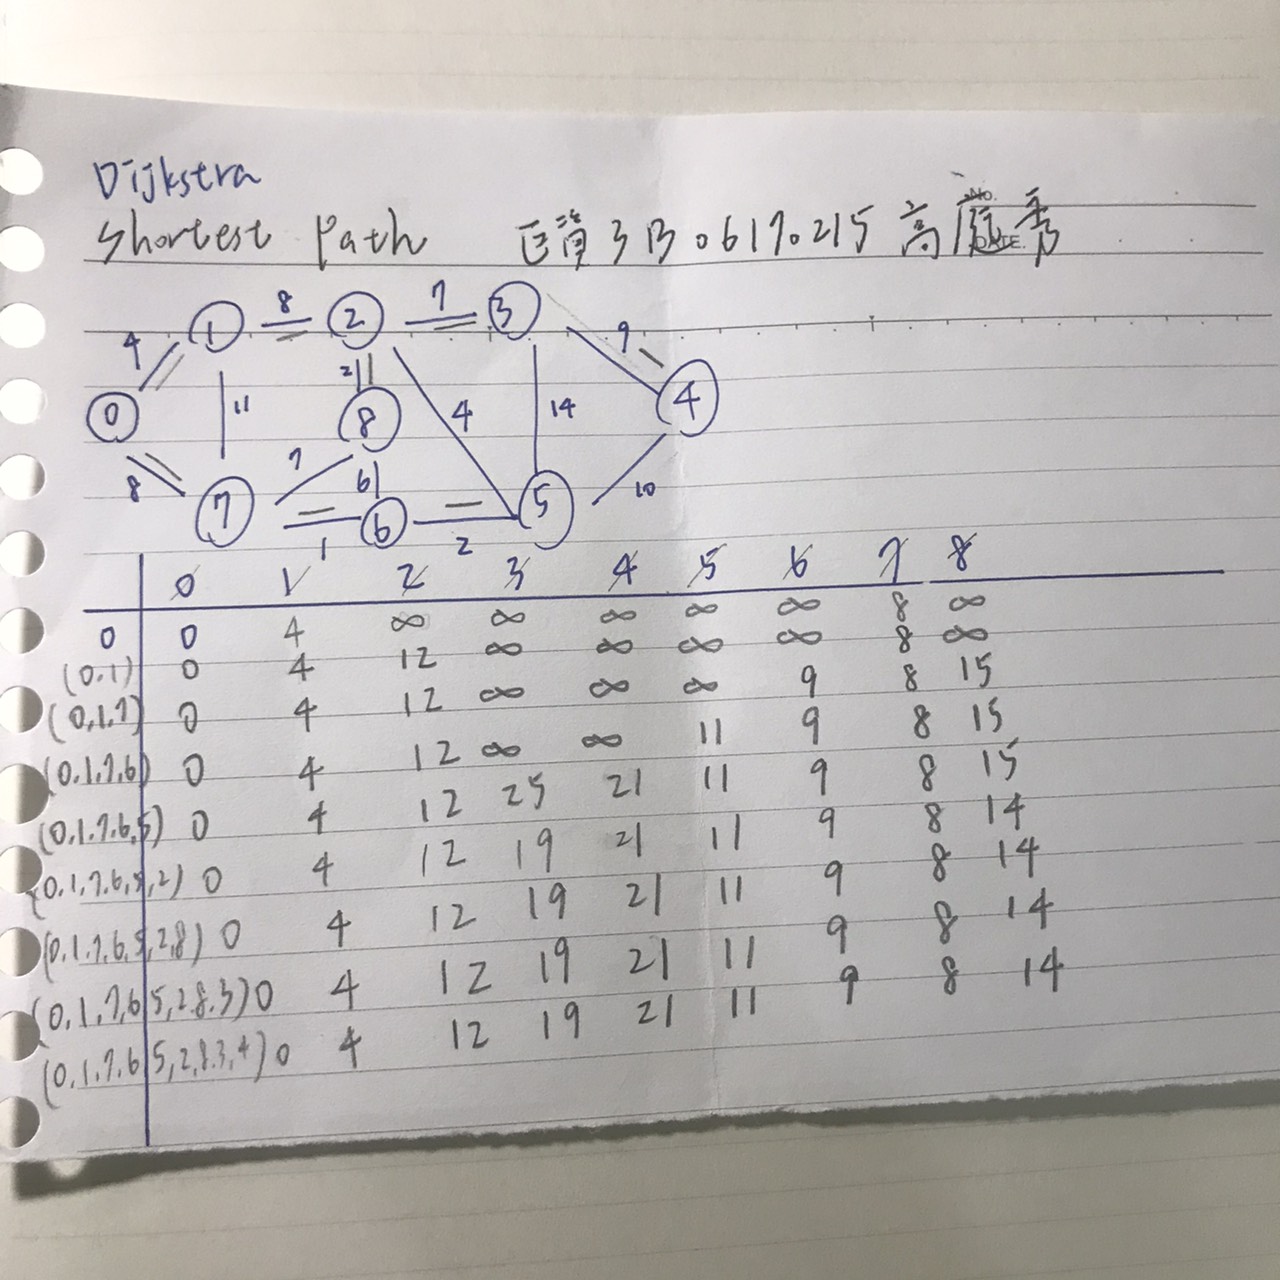 Dijkstra
Shortest Path 巨資3B 06170215 高庭秀
8 7
1 2 3
4 2 9
0 11 8 4 14 4
8 7 6 10
7 6 5
1 2
0 1 2 3 4 5 6 7 8
0 0 4 ∞ ∞ ∞ ∞ ∞ 8 ∞
(0,1) 0 4 12 ∞ ∞ ∞ ∞ 8 ∞
(0,1,7) 0 4 12 ∞ ∞ ∞ 9 8 15
(0,1,7,6) 0 4 12 ∞ ∞ 11 9 8 15
(0,1,7,6,5) 0 4 12 25 21 11 9 8 15
(0,1,7,6,5,2) 0 4 12 19 21 11 9 8 14
(0,1,7,6,5,2,8) 0 4 12 19 21 11 9 8 14
(0,1,7,6,5,2,8,3) 0 4 12 19 21 11 9 8 14
(0,1,7,6,5,2,8,3,4) 0 4 12 19 21 11 9 8 14